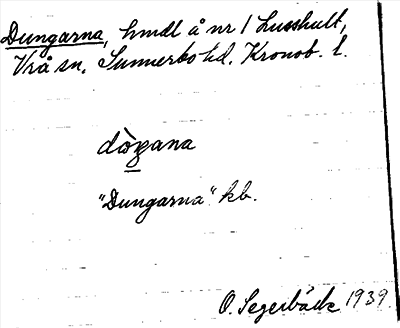 Dungarna, hmdl å nr 1 Lusshult,
Vrå sn. Sunnerbo hd. Kronob. l.
"Dungarna" kb.
O. Segerbäck 1939